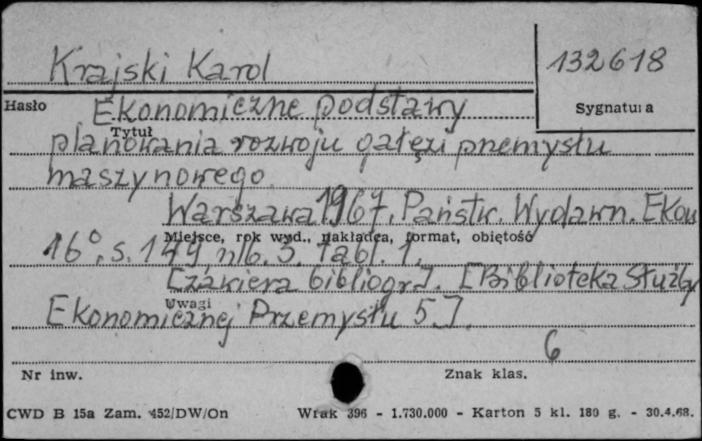 Krajski Karol
132618
Hasło
Sygnatura
Ekonomiczne podstawy
Tytuł
planowania rozwoju gałęzi przemysłu
maszynowego.
Warszawa 1967, Państw. Wydawn. Ekon
Miejsce, rok wyd., nakładca, format, objętość
16°, s. 149 nlb. 3. tabl. 1.
[Zawiera bibliogr.]. [Biblioteka Służby
Uwagi
Ekonomicznej Przemysłu 5.].
6
Nr inw.
Znak klas.
CWD B 15a Zam. 452/DW/On
Wrak 396 - 1.730.000 - Karton 5 kl. 180 g. - 30.4.68.